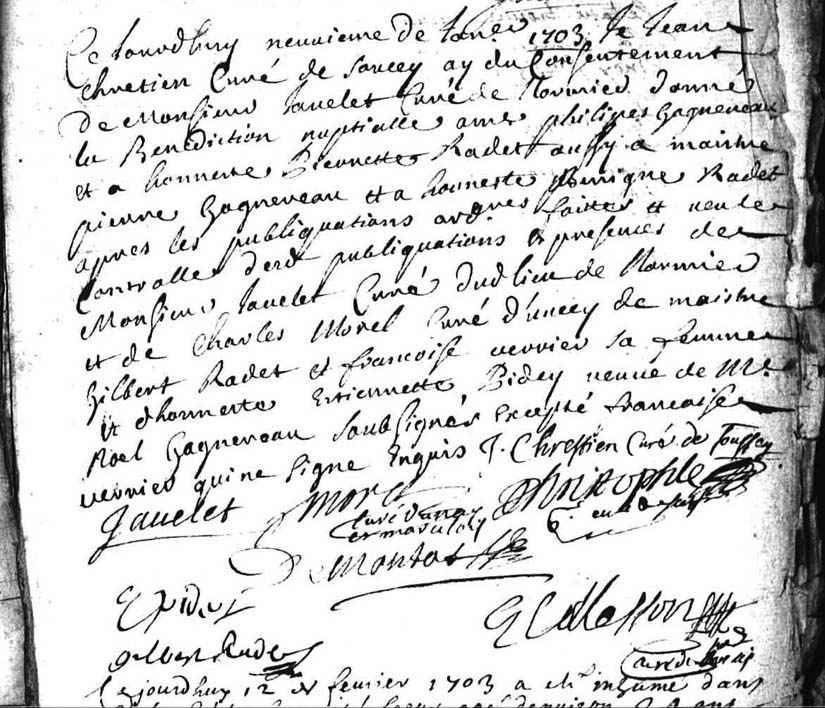 Ce Jourdhuy neuvieme de Janer 1703 Je Jean
Chretien Curé de saucey ay du Consentement
de Monsieur Jauelet Curé de Normier donné
la Benediction nuptialle a mre philipes Gagneveau
et a honneste Pierrette Radet aussy a maistre
pierre Gagneveau et a honneste Benigne Radet
apres les publiquations ord. faittes et veu le
Controlle desd publiquations es presences de
Monsieur Jauelet Curé dudlieu de Normier
et de Charles Morel Curé d'uncey de maistre
Gilbert Radet et francoise verrier sa femme
et dhonneste Estiennette Bidey veuue de Mr
Noel Gagneveau soubsignés Excepté francoise
verrier qui ne signe Enquis J. Chrestien Curé de
Jauelet Morel Christophle
curé d'uncey
De Montot
E Bidey
G Collasson
Gilbert Radet
Cejourdhuy 12 de fevrier 1703 a esté inhumé dans